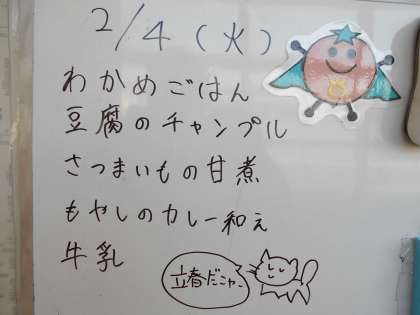 2/4(火)
わかめごはん
豆腐のチャンプル
さつまいもの甘煮
もやしのカレー和え
牛乳
立春だニャン